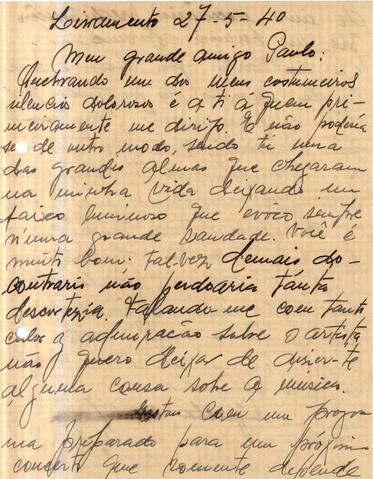 Livramento 27-5-40
Meu grande amigo Paulo:
Quebrando um dos meus costumeiros
silencios dolorosos é a ti a quem pri-
meiramente me dirijo. E não poderia
ser de outro modo, sendo tu uma
das grandes almas que chegaram
na minha vida deixando um
luminoso que evóco sempre
n'uma grande saudade. Você é
muito bom; talvez demais do-
contrario não perdoaria tanta
descortezia. Falando-me com tanto
calor a admiração sobre o artista
não quero deixar de dizer-te
alguma cousa sobre a musica.
Estou com um progra
ma preparado para um próximo
concerto que somente depende